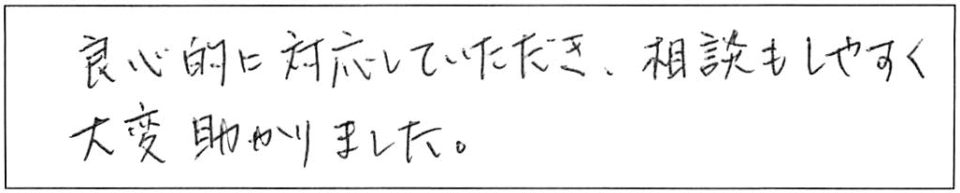 良心的に対応していただき、相談もしやすく
大変助かりました。